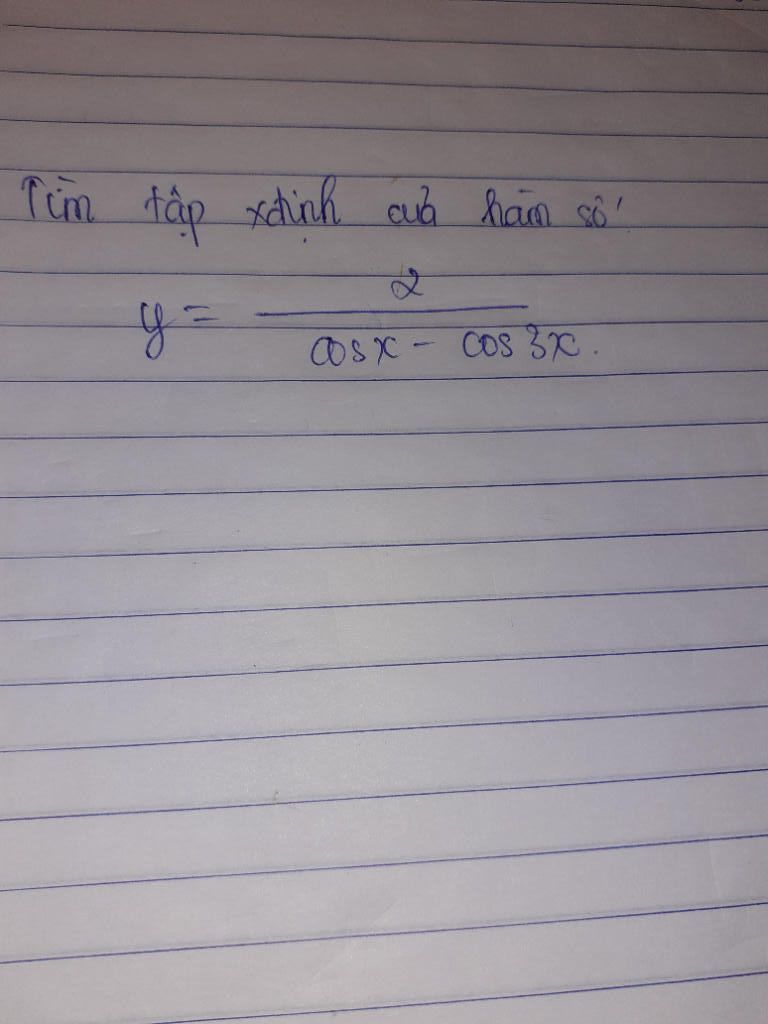 Tìm tập xđịnh của hàm số
y = 2 / (cosx - cos3x.